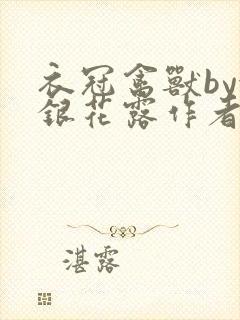 衣冠禽獸by
銀花露作者
湛露